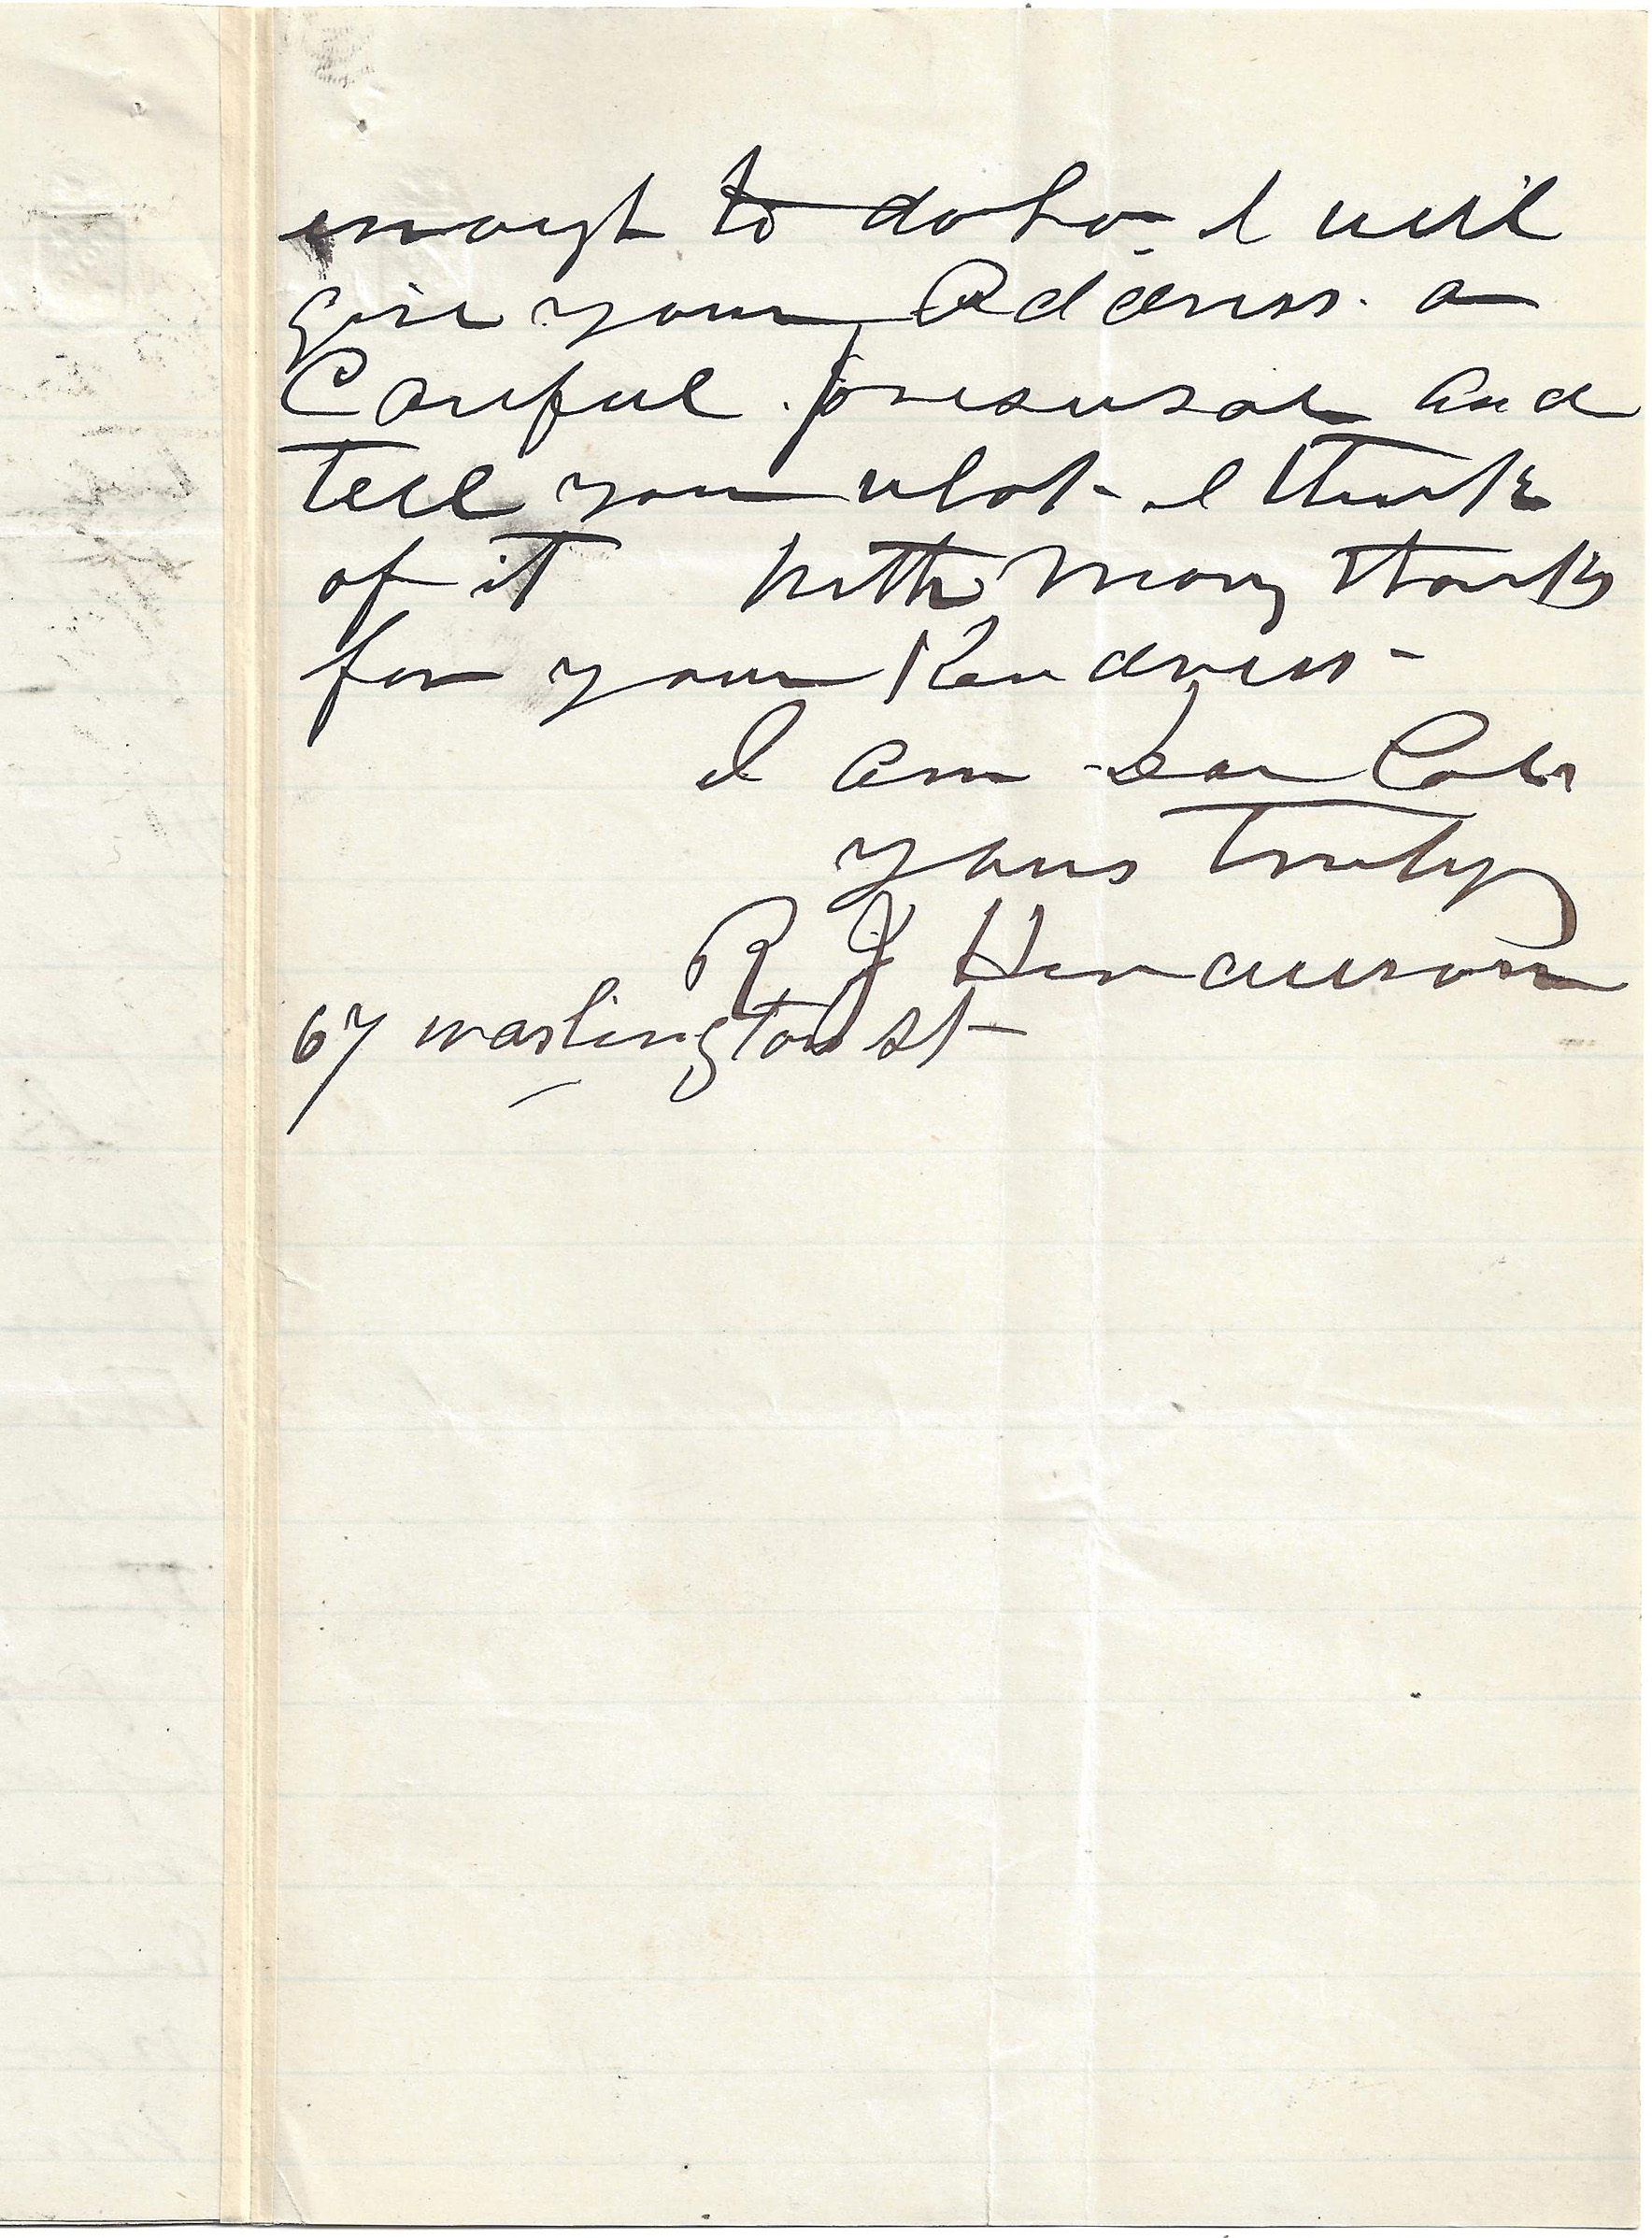 enough to do so. I will
give your Address. a
Careful perusal and
Tell you what I think
of it With many thanks
for your Kindness -
I am Dear Col
yours Truly
R J Henderson
67 washington st